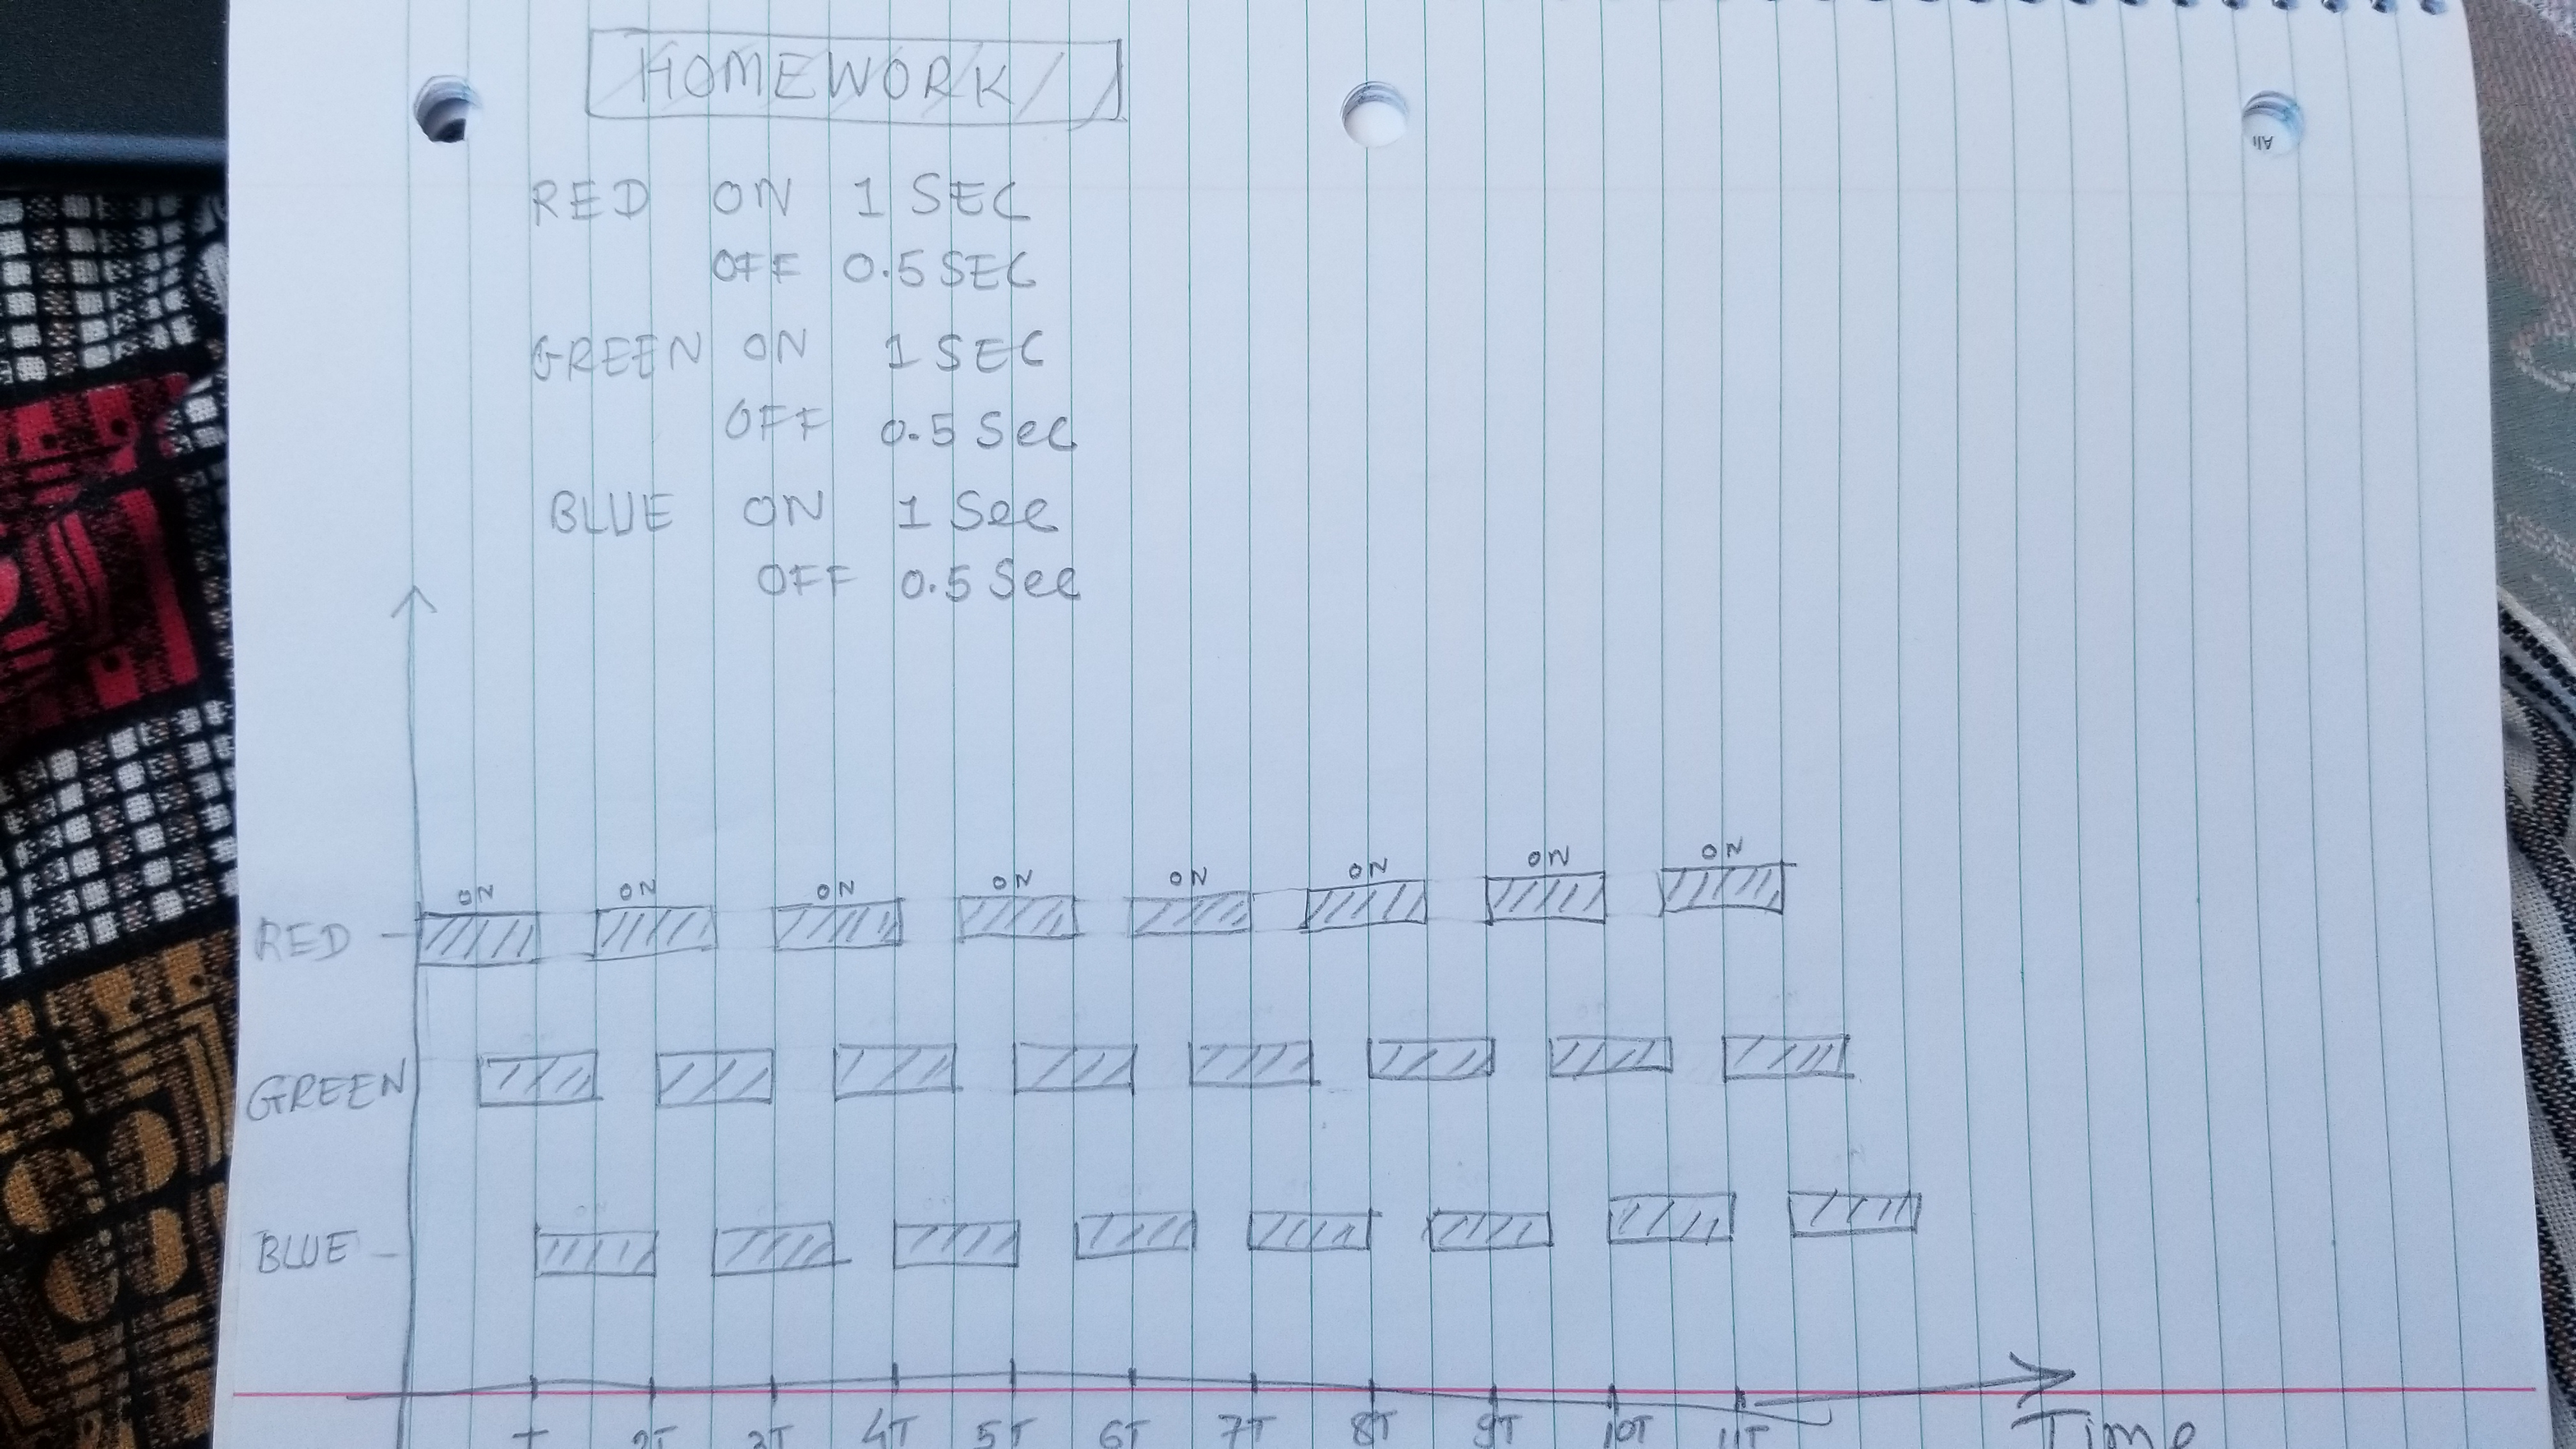 HOMEWORK
RED ON 1 SEC
OFF 0.5 SEC
GREEN ON 1 SEC
OFF 0.5 Sec
BLUE ON 1 Sec
OFF 0.5 Sec
ON ON ON ON ON ON ON ON
RED
GREEN
BLUE
T 2T 3T 4T 5T 6T 7T 8T 9T 10T 11T
Time